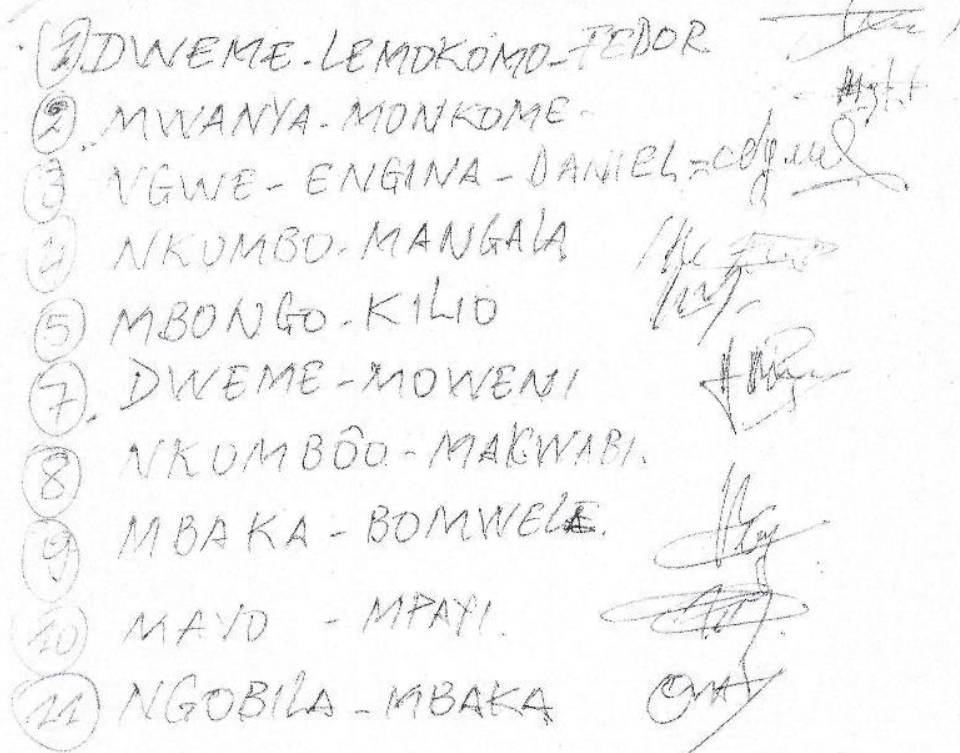 1. DWEME-LEMOKOMO-FEDOR
2. MWANYA-MONKOME-
3 NGWE-ENGINA-DANIEL=
4 NKUMBO-MANGALA
5 MBONGO-KILIO
7. DWEME-MOWENI
8 NKUMBÔO-MAKWABI.
9 MBAKA-BOMWELE.
10 MAYO - MPAYI.
11 NGOBILA-MBAKA